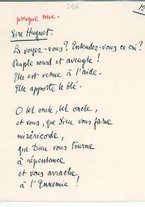 296
presque nue.
Sire Huguet.
La voyez-vous ? Entendez-vous ce cri ?
Peuple sourd et aveugle !
Elle est venue à l'aide.
Elle apporte le blé.
O bel oncle, bel oncle,
et vous, que Dieu vous fasse
miséricorde,
que Dieu vous tourne
à répentance
et vous arrache
à l'Ennemie !